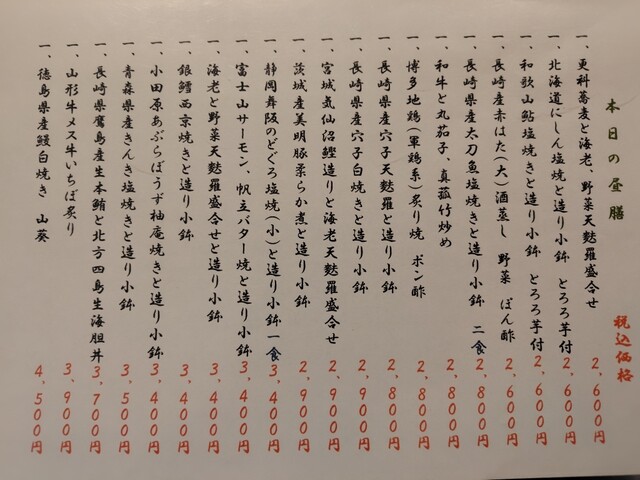 本日の昼膳
税込価格
一、更科蕎麦と海老、野菜天麩羅盛合せ 2,600円
一、北海道にしん塩焼と造り小鉢 とろろ芋付 2,600円
一、和歌山鮎塩焼きと造り小鉢 とろろ芋付 2,600円
一、長崎産赤はた(大)酒蒸し 野菜 ぽん酢 2,600円
一、長崎県産太刀魚塩焼きと造り小鉢 二食 2,800円
一、和牛と丸茄子、真菰竹炒め 2,800円
一、博多地鶏(軍鶏系)炙り焼 ポン酢 2,800円
一、長崎県産穴子天麩羅と造り小鉢 2,800円
一、長崎県産穴子白焼きと造り小鉢 2,800円
一、宮城気仙沼鰹造りと海老天麩羅盛合せ 2,900円
一、茨城産美明豚柔らか煮と造り小鉢 2,900円
一、静岡舞阪のどぐろ塩焼(小)と造り小鉢一食 3,400円
一、富士山サーモン、帆立バター焼と造り小鉢 3,400円
一、海老と野菜天麩羅盛合せと造り小鉢 3,400円
一、銀鱈西京焼きと造り小鉢 3,400円
一、小田原あぶらぼうず柚庵焼きと造り小鉢 3,400円
一、青森県産きんき塩焼きと造り小鉢 3,500円
一、長崎県鷹島産生本鮪と北方四島生海胆丼 3,700円
一、山形牛メス牛いちぼ炙り 3,900円
一、徳島県産鰻白焼き 山葵 4,500円